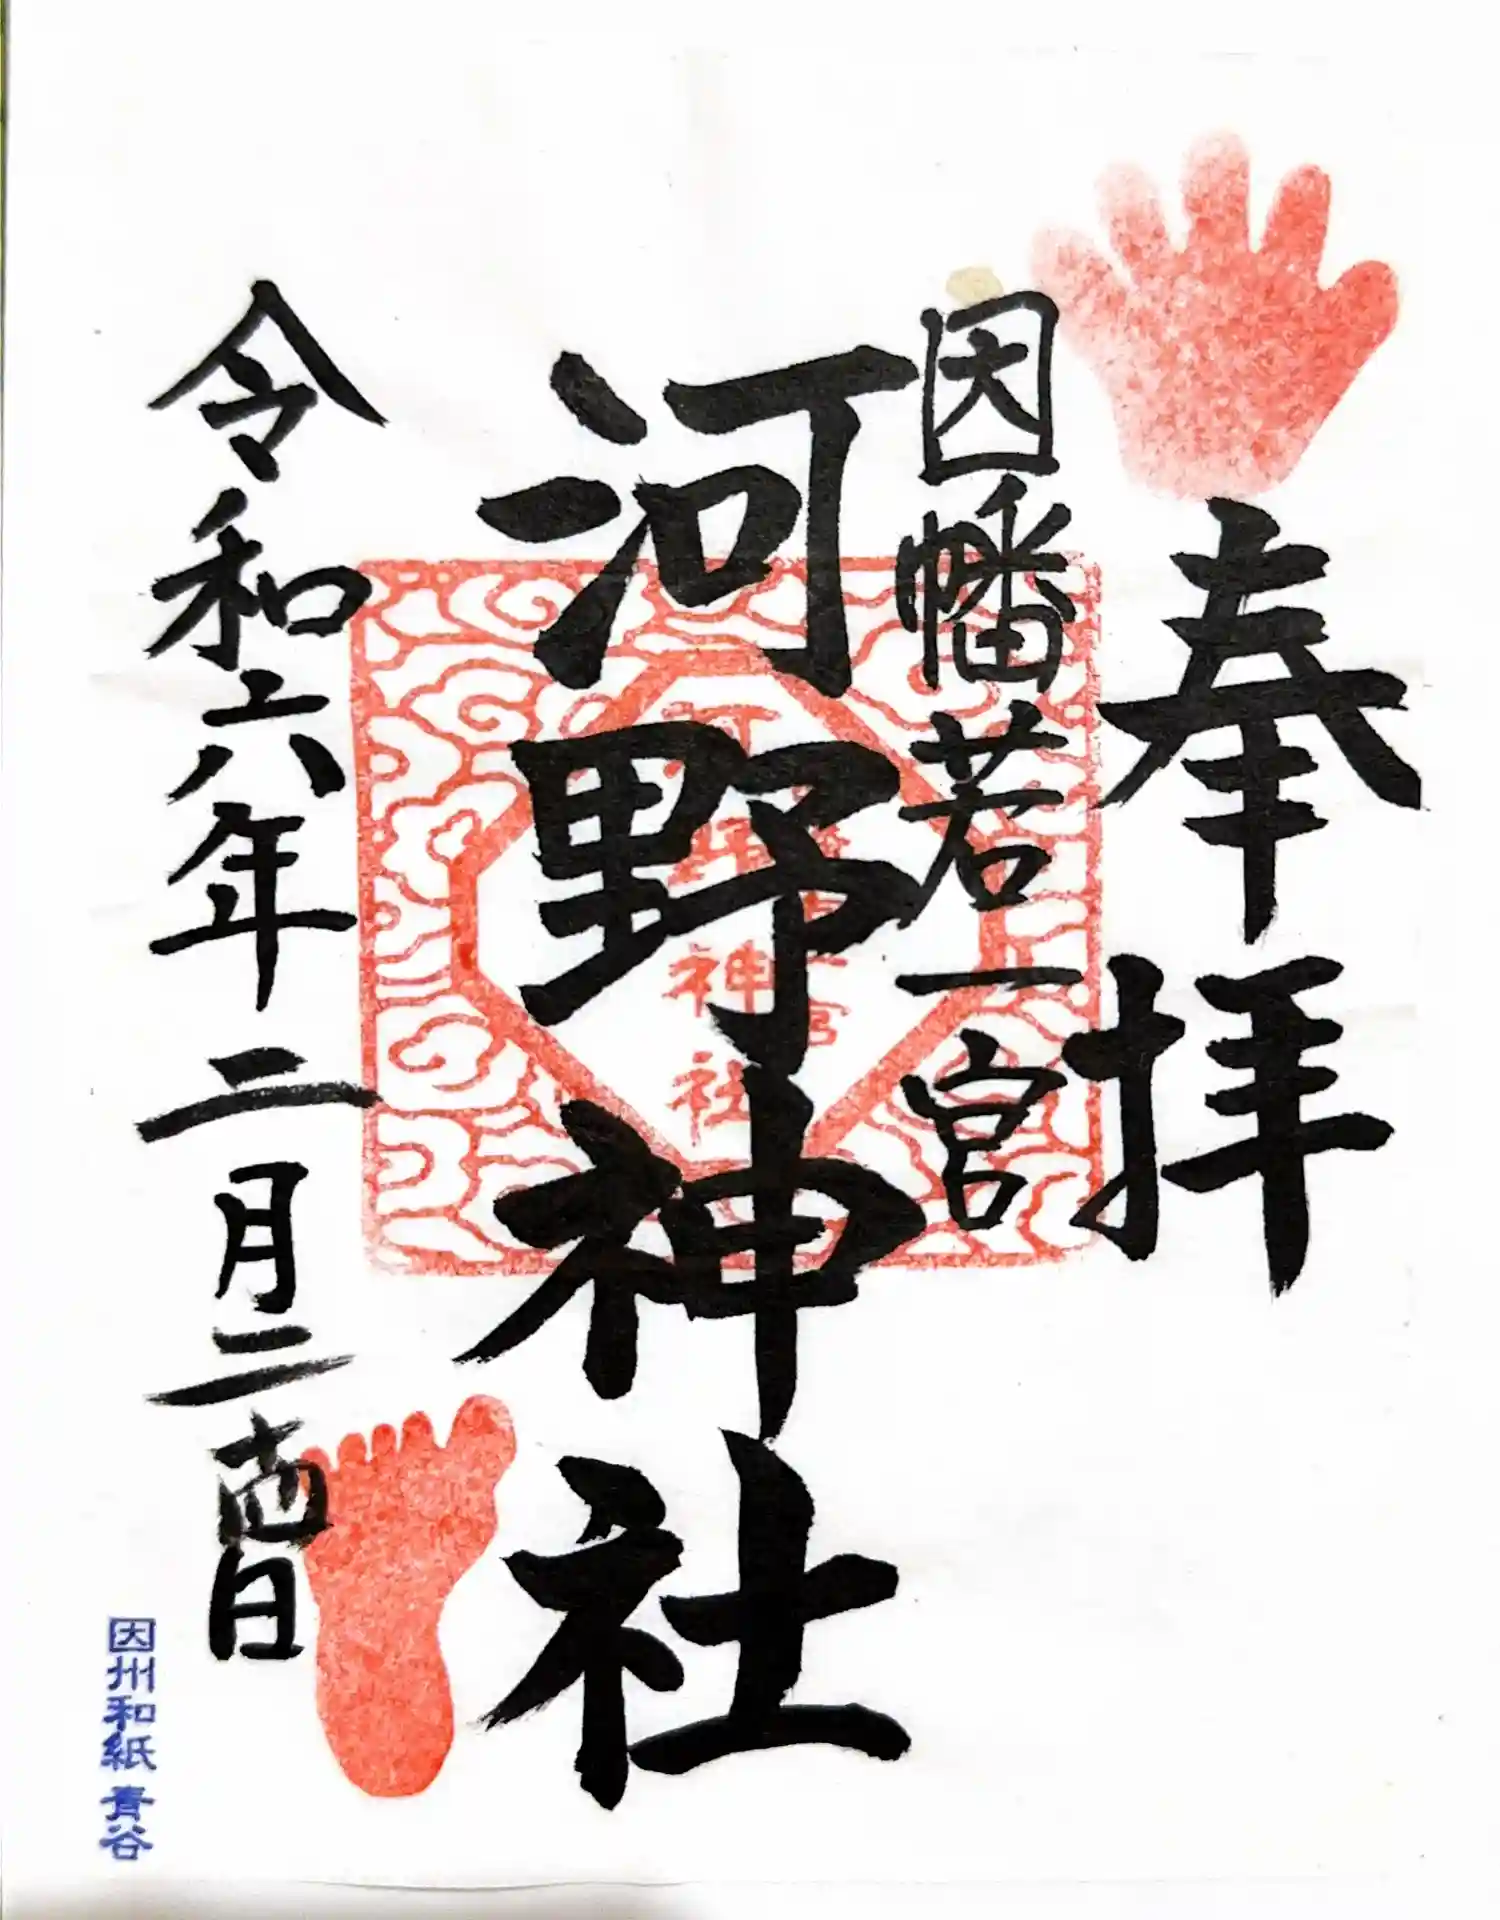 奉拝
因幡若一宮
河野神社
令和六年二月二十四日
神社
因州和紙 青谷